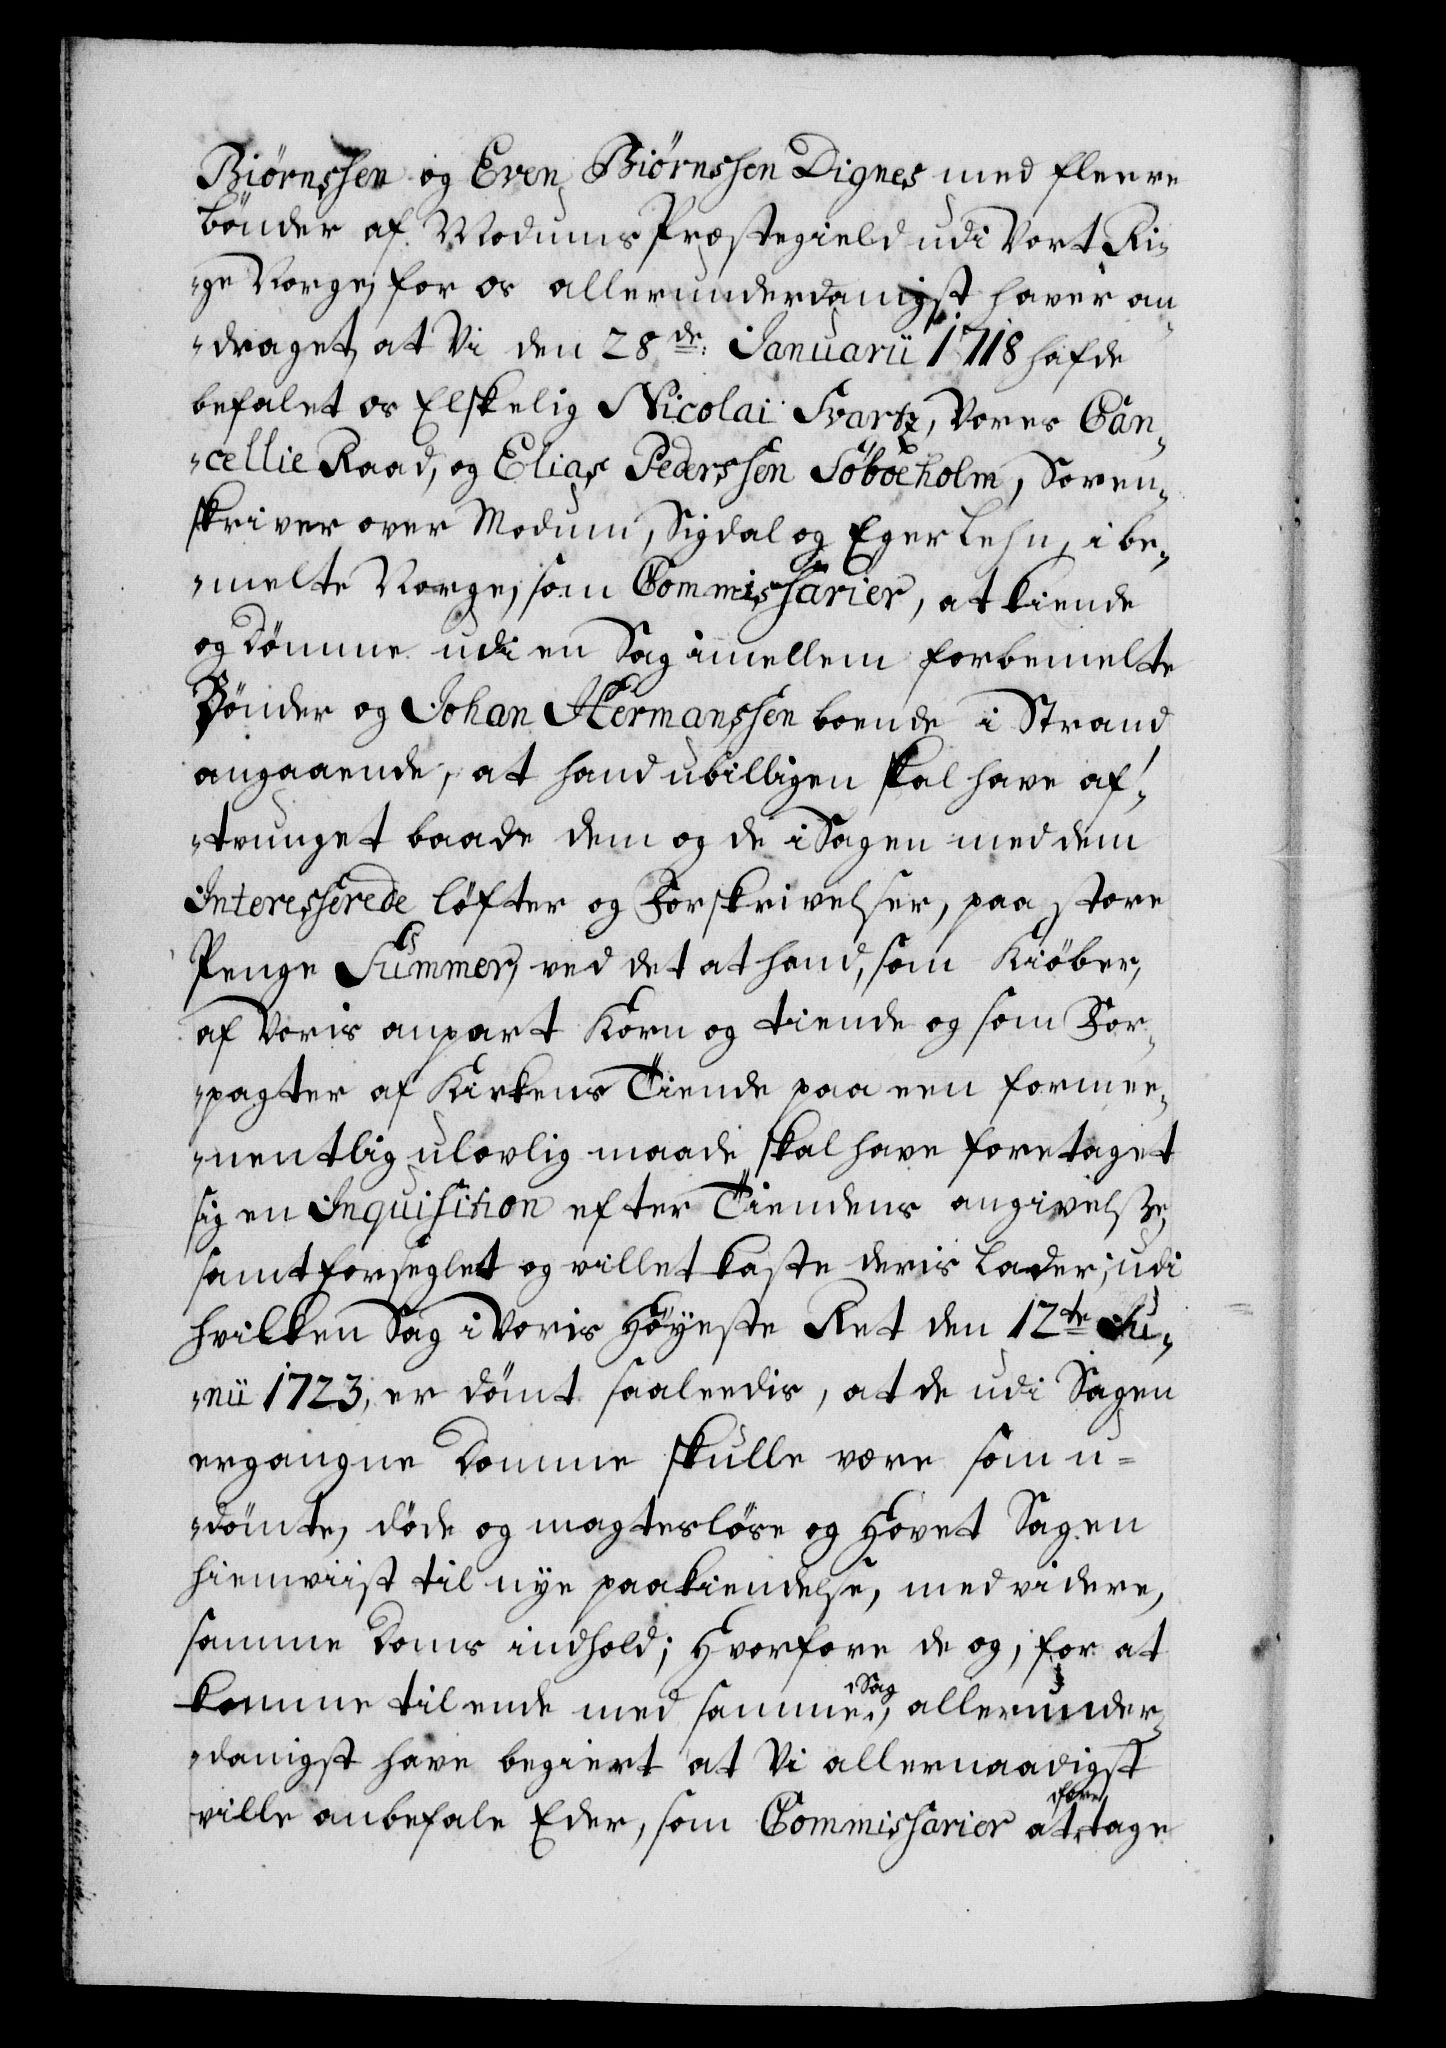 Biørnssen og Even Biørnssen Dignes med fleere
bønder af Modums Præstegield udi Vort Ri-
-ge Norge, for os allerunderdanigst haver an-
-draget, at Vi den 28de: Januarii 1718 hafde
befalet os Elskelig Nicolai Svartz, Vores Can-
-cellie Raad, og Elias Pederssen Söboeholm, Soren-
skriver over Modum, Sigdal og Eger Lehn, i be-
-melte Norge, som Commissarier, at kiende
og dömme udi en Sag imellem forbemelte
Bönder og Johan Hermanssen boende i Strand
angaaende, at hand ubilligen skal have af-
-tvunget baade dem og de i Sagen med dem
Interesserede löfter og Forskrivelser, paa store
Penge Summer, ved det at hand, som Kiöber,
af Voris anpart Korn og tiende og som For-
-pagter af Kirkens Tiende paa een formee-
-nentlig ulovlig maade skal have foretaget
sig en Inquisition efter Tiendens angivelse,
samt forseglet og villet kaste deris Lader; udi
hvilken Sag i Voris Höyeste Ret den 12te Ju-
-nii 1723, er dömt saaleedis, at de udi Sagen
ergangne Domme skulle være som u-
-dömte, döde og magteslöse og Hovet Sagen
hiemviist til nye paakiendelse, med videre,
samme Doms indhold; Hvorfore de og, for at
komme til ende med samme Sag, allerunder-
-danigst have begiert at Vi allernaadigst
ville anbefale Eder, som Commissarier at foretage